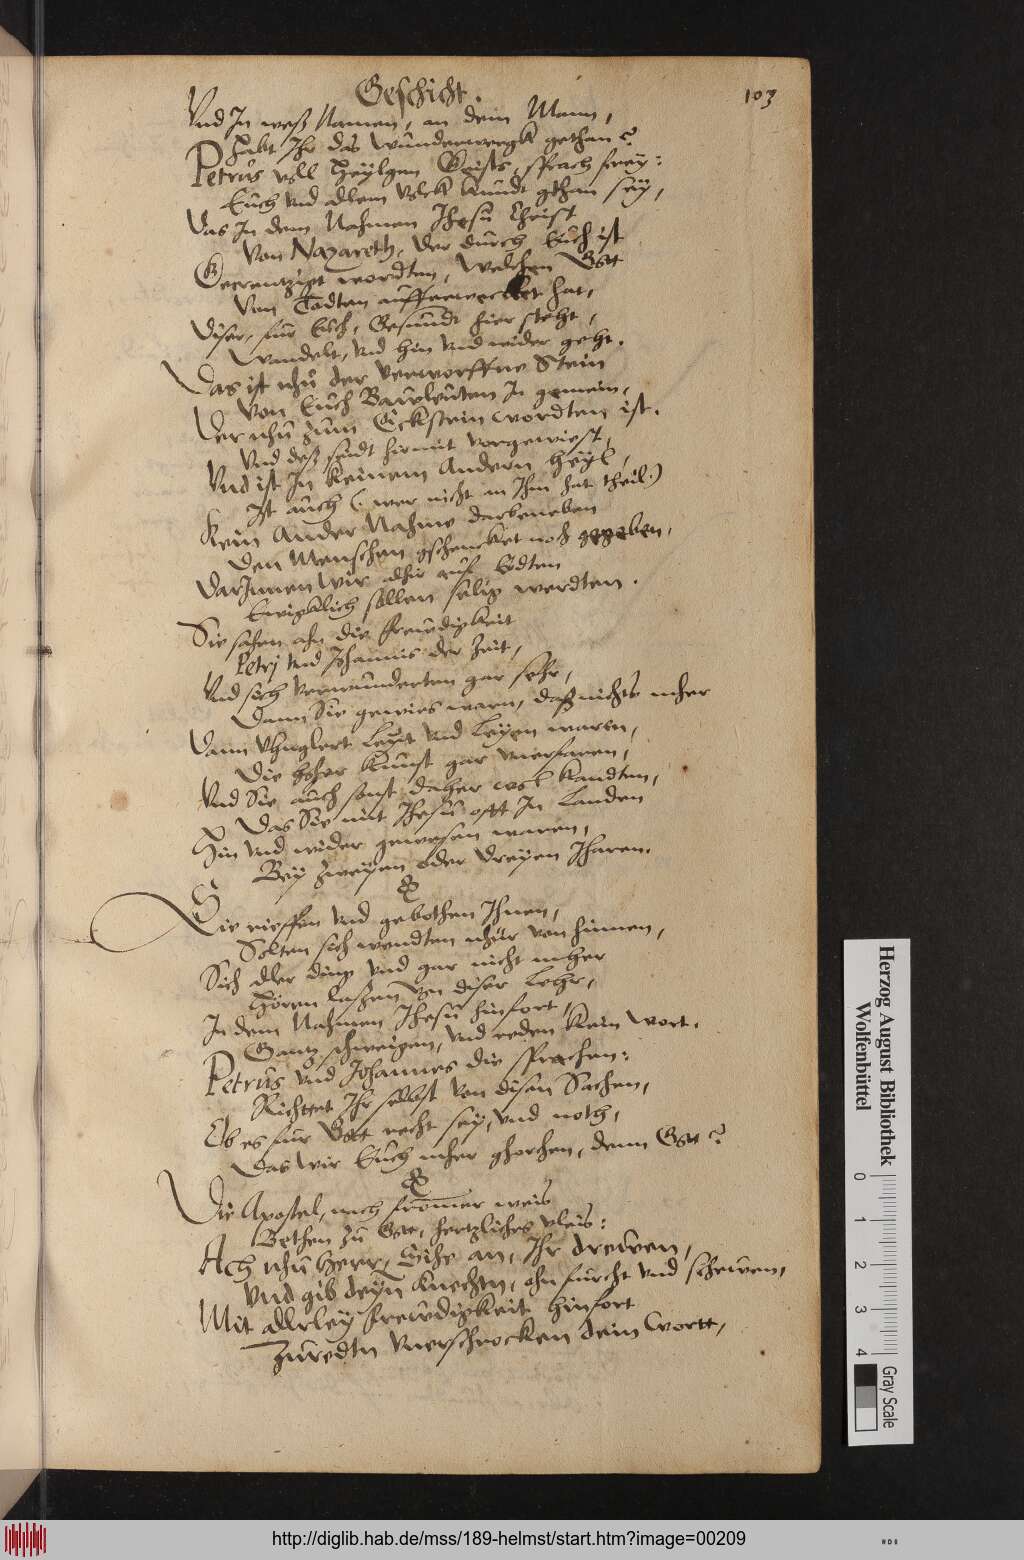 Geschicht.
103
Und In weß Namen, an dem Mann,
Habt Ihr das wunderwergk gethan?
Petrus voll Heyligen Geists, sprach frey:
Euch und allem volck kundt gthan sey,
Das In dem Nahmen Jhesu Christ
Von Nazareth, der durch Euch ist
Gecreutziget wordten, welchen Gott
Von Todten aufferwecket hat,
Diser, fur Euch, Gesundt hier steht,
Wandelt, und hin und wider geht.
Das ist nhu der verworffne Stein
Von Euch Bawleuten In gemein,
Der nhu zum Eckstein wordten ist.
Und deß findt hirmit vorgewist,
Und ist In keinem Andern Heyl,
Ist auch (wer nicht an Ihm hat theil)
Kein Ander Nahme darbeneben
Den Menschen gschencket noch gegeben,
DarInnen Wir alhie auf Erdten
Ewigklich sollen selig werdten.
Sie sahen ahn die Frewdigkeit
Petrj und Johannis der Zeit,
Und sich verwunderten gar sehr,
Dann Sie gewies warn, daß nichts mher
Dann Unglert Leyt und Leyen waren,
Die hoher kunst gar unerfaren,
Und Sie auch sonst daher wol kandten,
Das Sie mit Jhesu offt In Landen
Hin und wider gewesen waren,
Bey zweyen oder dreyen Jharen.
Sie rieffen und gebothen Ihnen,
Solten sich wendten nhur von hinnen,
Sich aller ding und gar nicht mher
Hören laßen von diser Lehr,
In dem Nahmen Jhesu hinfort,
Gantz schweigen, und reden kein wort.
Petrus und Johannes die sprachen:
Richttet Ihr selbst von disen Sachen,
Ob es fur Gott recht sey, und noth,
Das Wir Euch mher ghorchen, denn Gott?
Die Apostel, nach frommer weis
Bethen zu Gott, hertzliches vleis:
Ach nhu Herr, Sihe an, Ihr drewen,
Und gib deyn knechtn, ohn furcht und schewen,
Mit allerley Frewdigkeit hinfort
Zuredtn unerschrocken dein Wortt,
Herzog August Bibliothek
Wolfenbüttel
0 1 2 3 4
Gray Scale
http://diglib.hab.de/mss/189-helmst/start.htm?image=00209